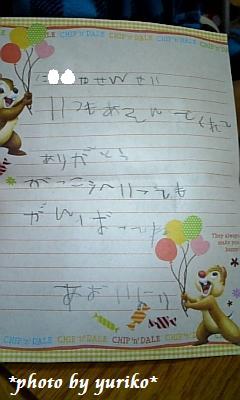 CHIP 'N' DALE CHIP 'N' DALE
に やせんせい
いつもあそんでくれて
ありがとう
がっこうへいっても
がんばってね
They always
make you
あおいより
CHIP 'N' DALE CHIP 'N' DALE CHIP 'N' DALE
*photo by yuriko*